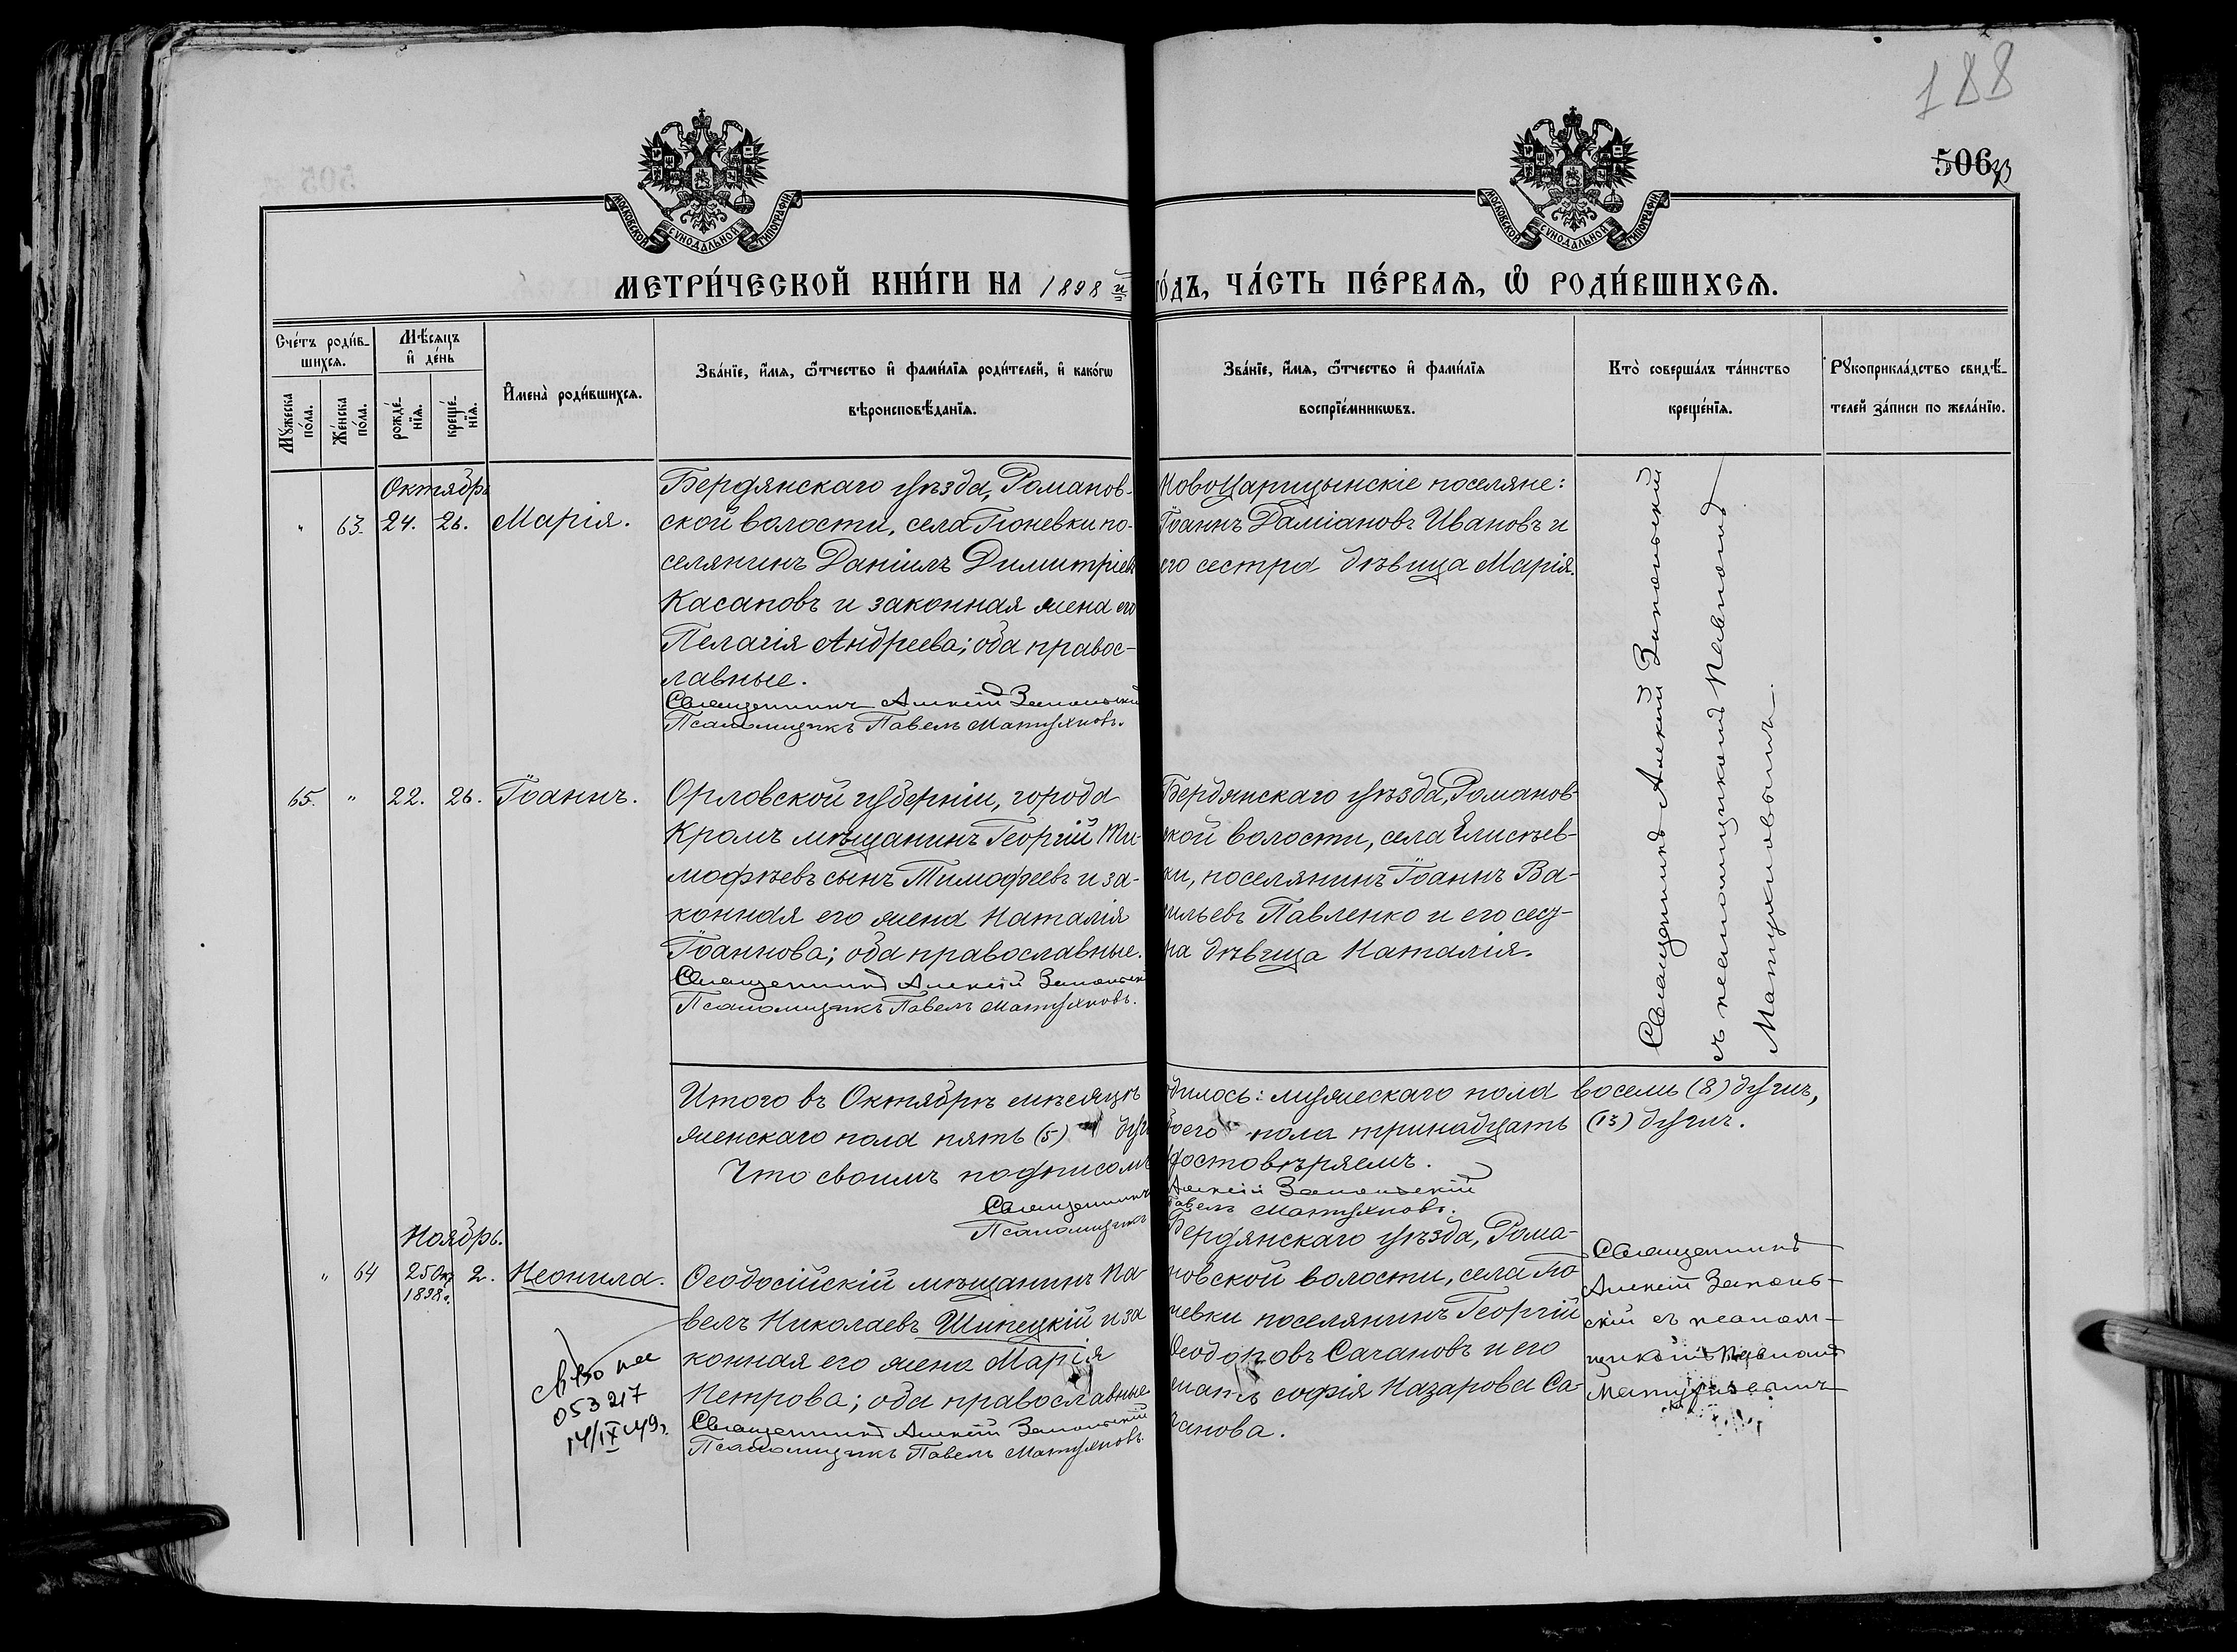 188
506
МОСКОВСКОЙ СѴНОДАЛЬНОЙ ТИПОГРАФІИ
МОСКОВСКОЙ СѴНОДАЛЬНОЙ ТИПОГРАФІИ
МЕТРИ́ЧЕСКОЙ КНИ́ГИ НА 1898 й го́дъ, ЧА́СТЬ ПЕ́РВАѦ, Ѽ РОДИ́ВШИХСѦ.
Сче́тъ роди́в-
шихся.
Мѣ́сяцъ
и҆ де́нь
Мꙋ́жеска
по́ла.
Же́нска
по́ла.
рожде́-
нїя.
креще́-
нїя.
И҆мена̀ роди́вшихся.
Зва́нїе, и҆́мя, ѻ҆́тчество и҆ фами́лїя роди́телей, и҆ како́гѡ
вѣроисповѣ́данїя.
Зва́нїе, и҆́мя, ѻ҆́тчество и҆ фами́лїя
воспрїе́мникѡвъ.
Кто̀ соверша́лъ та́инство
креще́нїя.
Рꙋкоприкла́дство свидѣ́-
телей за́писи по жела́нїю.
Октябрь
" 63. 24. 26. Марія.
Бердянскаго уѣзда, Романов-
ской волости, села Гюневки по-
селянинъ Даніилъ Димитріевъ
Касаповъ и законная жена его
Пелагія Андреева; оба правос-
лавные.
Священникъ Алексій Запольскій
Псаломщикъ Павелъ Матухновъ.
Новоцарицынскіе поселяне:
Іоаннъ Даміановъ Ивановъ и
его сестра дѣвица Марія.
Священникъ Алексій Запольскій
съ псаломщикомъ Павломъ
Матухновымъ.
65. " 22. 26. Іоаннъ.
Орловской губерніи, города
Кромъ мѣщанинъ Георгій Ти-
мофѣевъ сынъ Тимофеевъ и за-
конная его жена Наталія
Іоаннова; оба православные.
Священникъ Алексій Запольскій
Псаломщикъ Павелъ Матухновъ.
Бердянскаго уѣзда, Романов-
ской волости, села Елисѣев-
ки, поселянинъ Іоаннъ Ва-
сильевъ Павленко и его сест-
ра дѣвица Наталія.
Итого въ Октябрѣ мѣсяцѣ родилось: мужескаго пола восемь (8) душъ,
женскаго пола пять (5) душъ обоего пола тринадцать (13) душъ.
Что своимъ подписомъ удостовѣряемъ.
Священникъ Алексій Запольскій
Псаломщикъ Павелъ Матухновъ.
Ноябрь.
" 64 25 Окт 1898 г. 2. Неонила.
Ѳеодосійскій мѣщанинъ Па-
велъ Николаевъ Шипецкій и за
конная его жена Марія
Петрова; оба православные
Священникъ Алексій Запольскій
Псаломщикъ Павелъ Матухновъ.
Бердянскаго уѣзда, Рома-
новской волости, села Гю
невки поселянинъ Георгій
Ѳеодоровъ Сачановъ и его
мать софія Назарова Са-
чанова.
Священникъ
Алексій Заполь-
скій съ псалом-
щикомъ Павломъ
Матухновымъ
053217
14/IX 49 г.